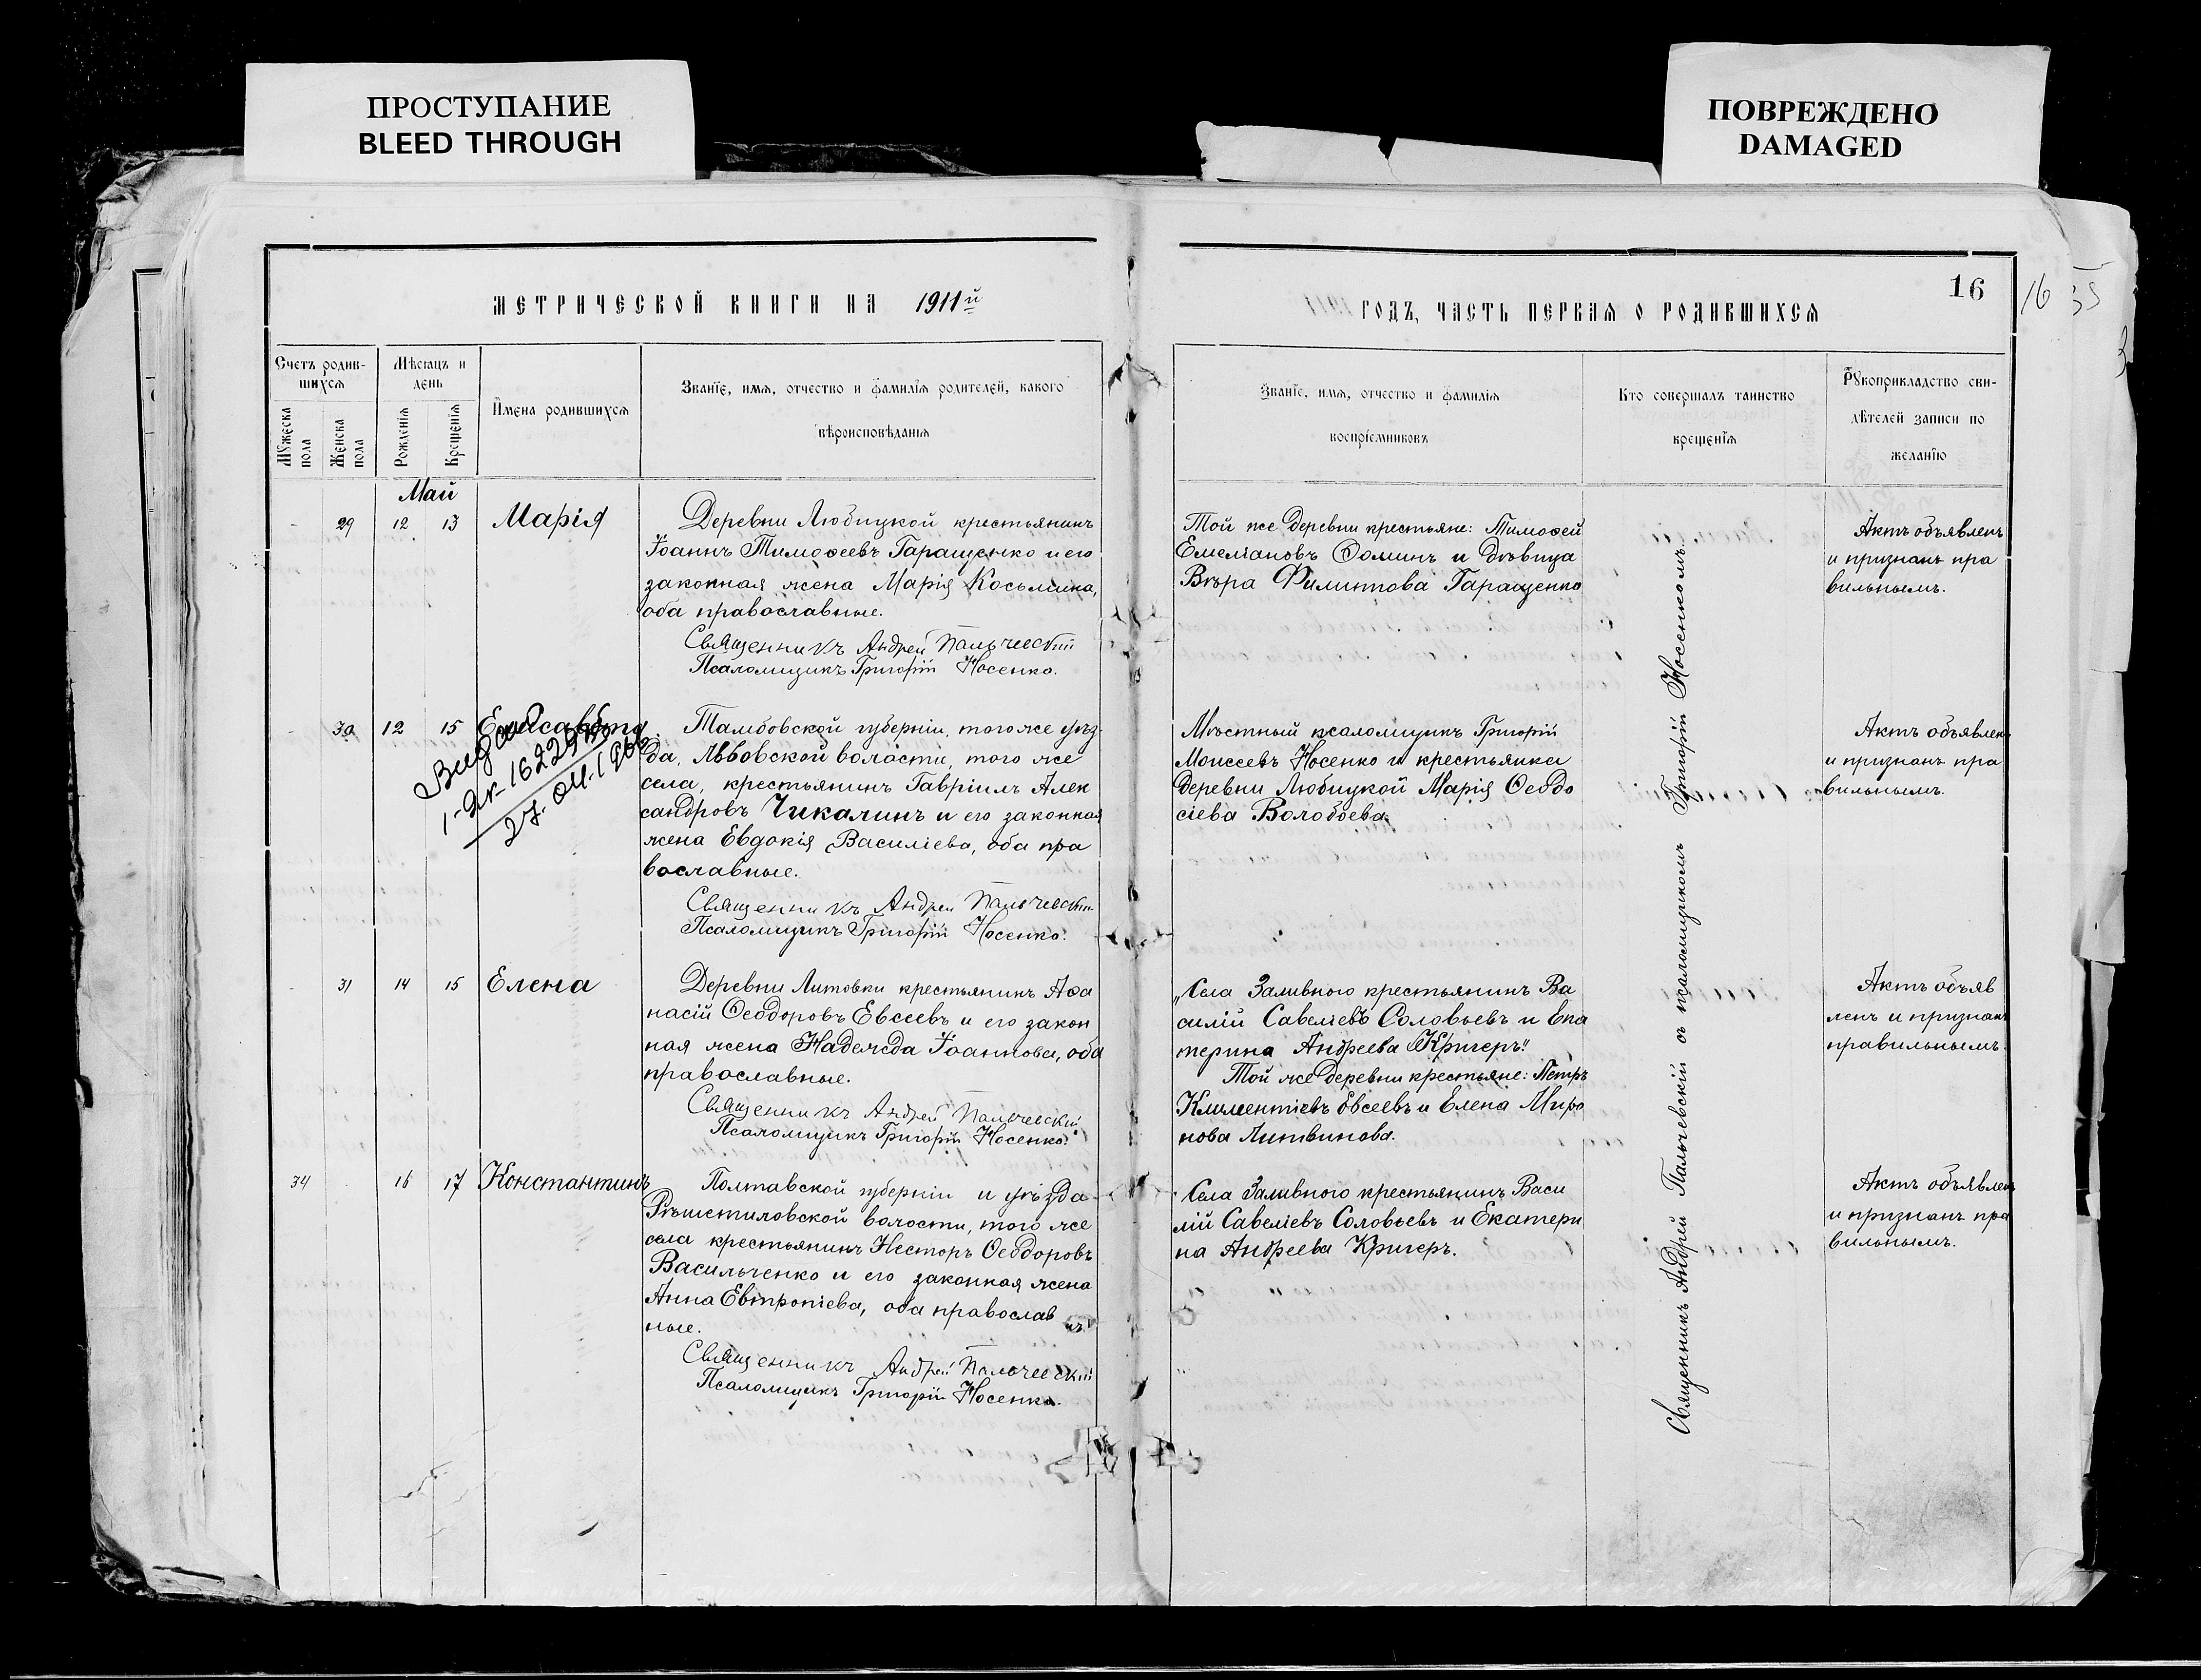 ПРОСТУПАНИЕ
BLEED THROUGH
ПОВРЕЖДЕНО
DAMAGED
МЕТРИЧЕСКОЙ КНИГИ НА 1911й
ГОДЪ, ЧАСТЬ ПЕРВАЯ О РОДИВШИХСЯ
16
16
35
Счетъ родив-
шихся
Мужеска пола
Женска пола
Мѣсяцъ и
день
Рожденія
Крещенія
Имена родившихся
Званіе, имя, отчество и фамилія родителей, какого
вѣроисповѣданія
Званіе, имя, отчество и фамилія
воспріемниковъ
Кто совершалъ таинство
крещенія
Рукоприкладство сви-
дѣтелей записи по
желанію
Май
- 29 12 13 Марія
Деревни Любицкой крестьянинъ
Іоаннъ Тимоѳеевъ Гаращенко и его
законная жена Марія Косьмина,
оба православные.
Священникъ Андрей Пальчевскій
Псаломщикъ Григорій Носенко.
Той же деревни крестьяне: Тимоѳей
Емеліановъ Ѳоминъ и дѣвица
Вѣра Филиппова Гаращенко
Актъ объявленъ
и признанъ пра
вильнымъ.
- 30 12 15 Елисавета
27. 04. 1966
Тамбовской губерніи, того же уѣз-
да, Львовской воласти, того же
села, крестьянинъ Гавріилъ Алек
сандровъ Чикалинъ и его законная
жена Евдокія Василіева, оба пра
вославные.
Священникъ Андрей Пальчевскій
Псаломщикъ Григорій Носенко.
Мѣстный псаломщикъ Григорій
Моисеевъ Носенко и крестьянка
деревни Любицкой Марія Ѳеодо
сіева Волобоева.
Актъ объявленъ
и признанъ пра
вильнымъ.
- 31 14 15 Елена
Деревни Литовки крестьянинъ Аѳа
насій Ѳеодоровъ Евсеевъ и его закон
ная жена Надежда Іоаннова, оба
православные.
Священникъ Андрей Пальчевскій
Псаломщикъ Григорій Носенко.
„Села Заливного крестьянинъ Ва
силій Савеліевъ Соловьевъ и Ека
терина Андреева Кригеръ".
Той же деревни крестьяне: Петръ
Климентіевъ Евсеевъ и Елена Миро
нова Литвинова.
Актъ объяв
ленъ и признанъ
правильнымъ.
34 16 17 Константинъ
Полтавской губерніи и уѣзда
Рѣшетиловской волости, того же
села крестьянинъ Несторъ Ѳеодоровъ
Васильченко и его законная жена
Анна Евтропіева, оба православ
ные.
Священникъ Андрей Пальчевскій
Псаломщикъ Григорій Носенко.
Села Заливного крестьянинъ Васи
лій Савеліевъ Соловьевъ и Екатери
на Андреева Кригеръ.
Актъ объявленъ
и признанъ пра
вильнымъ.
Священникъ Андрей Пальчевскій съ псаломщикомъ Григорій Носенкомъ.